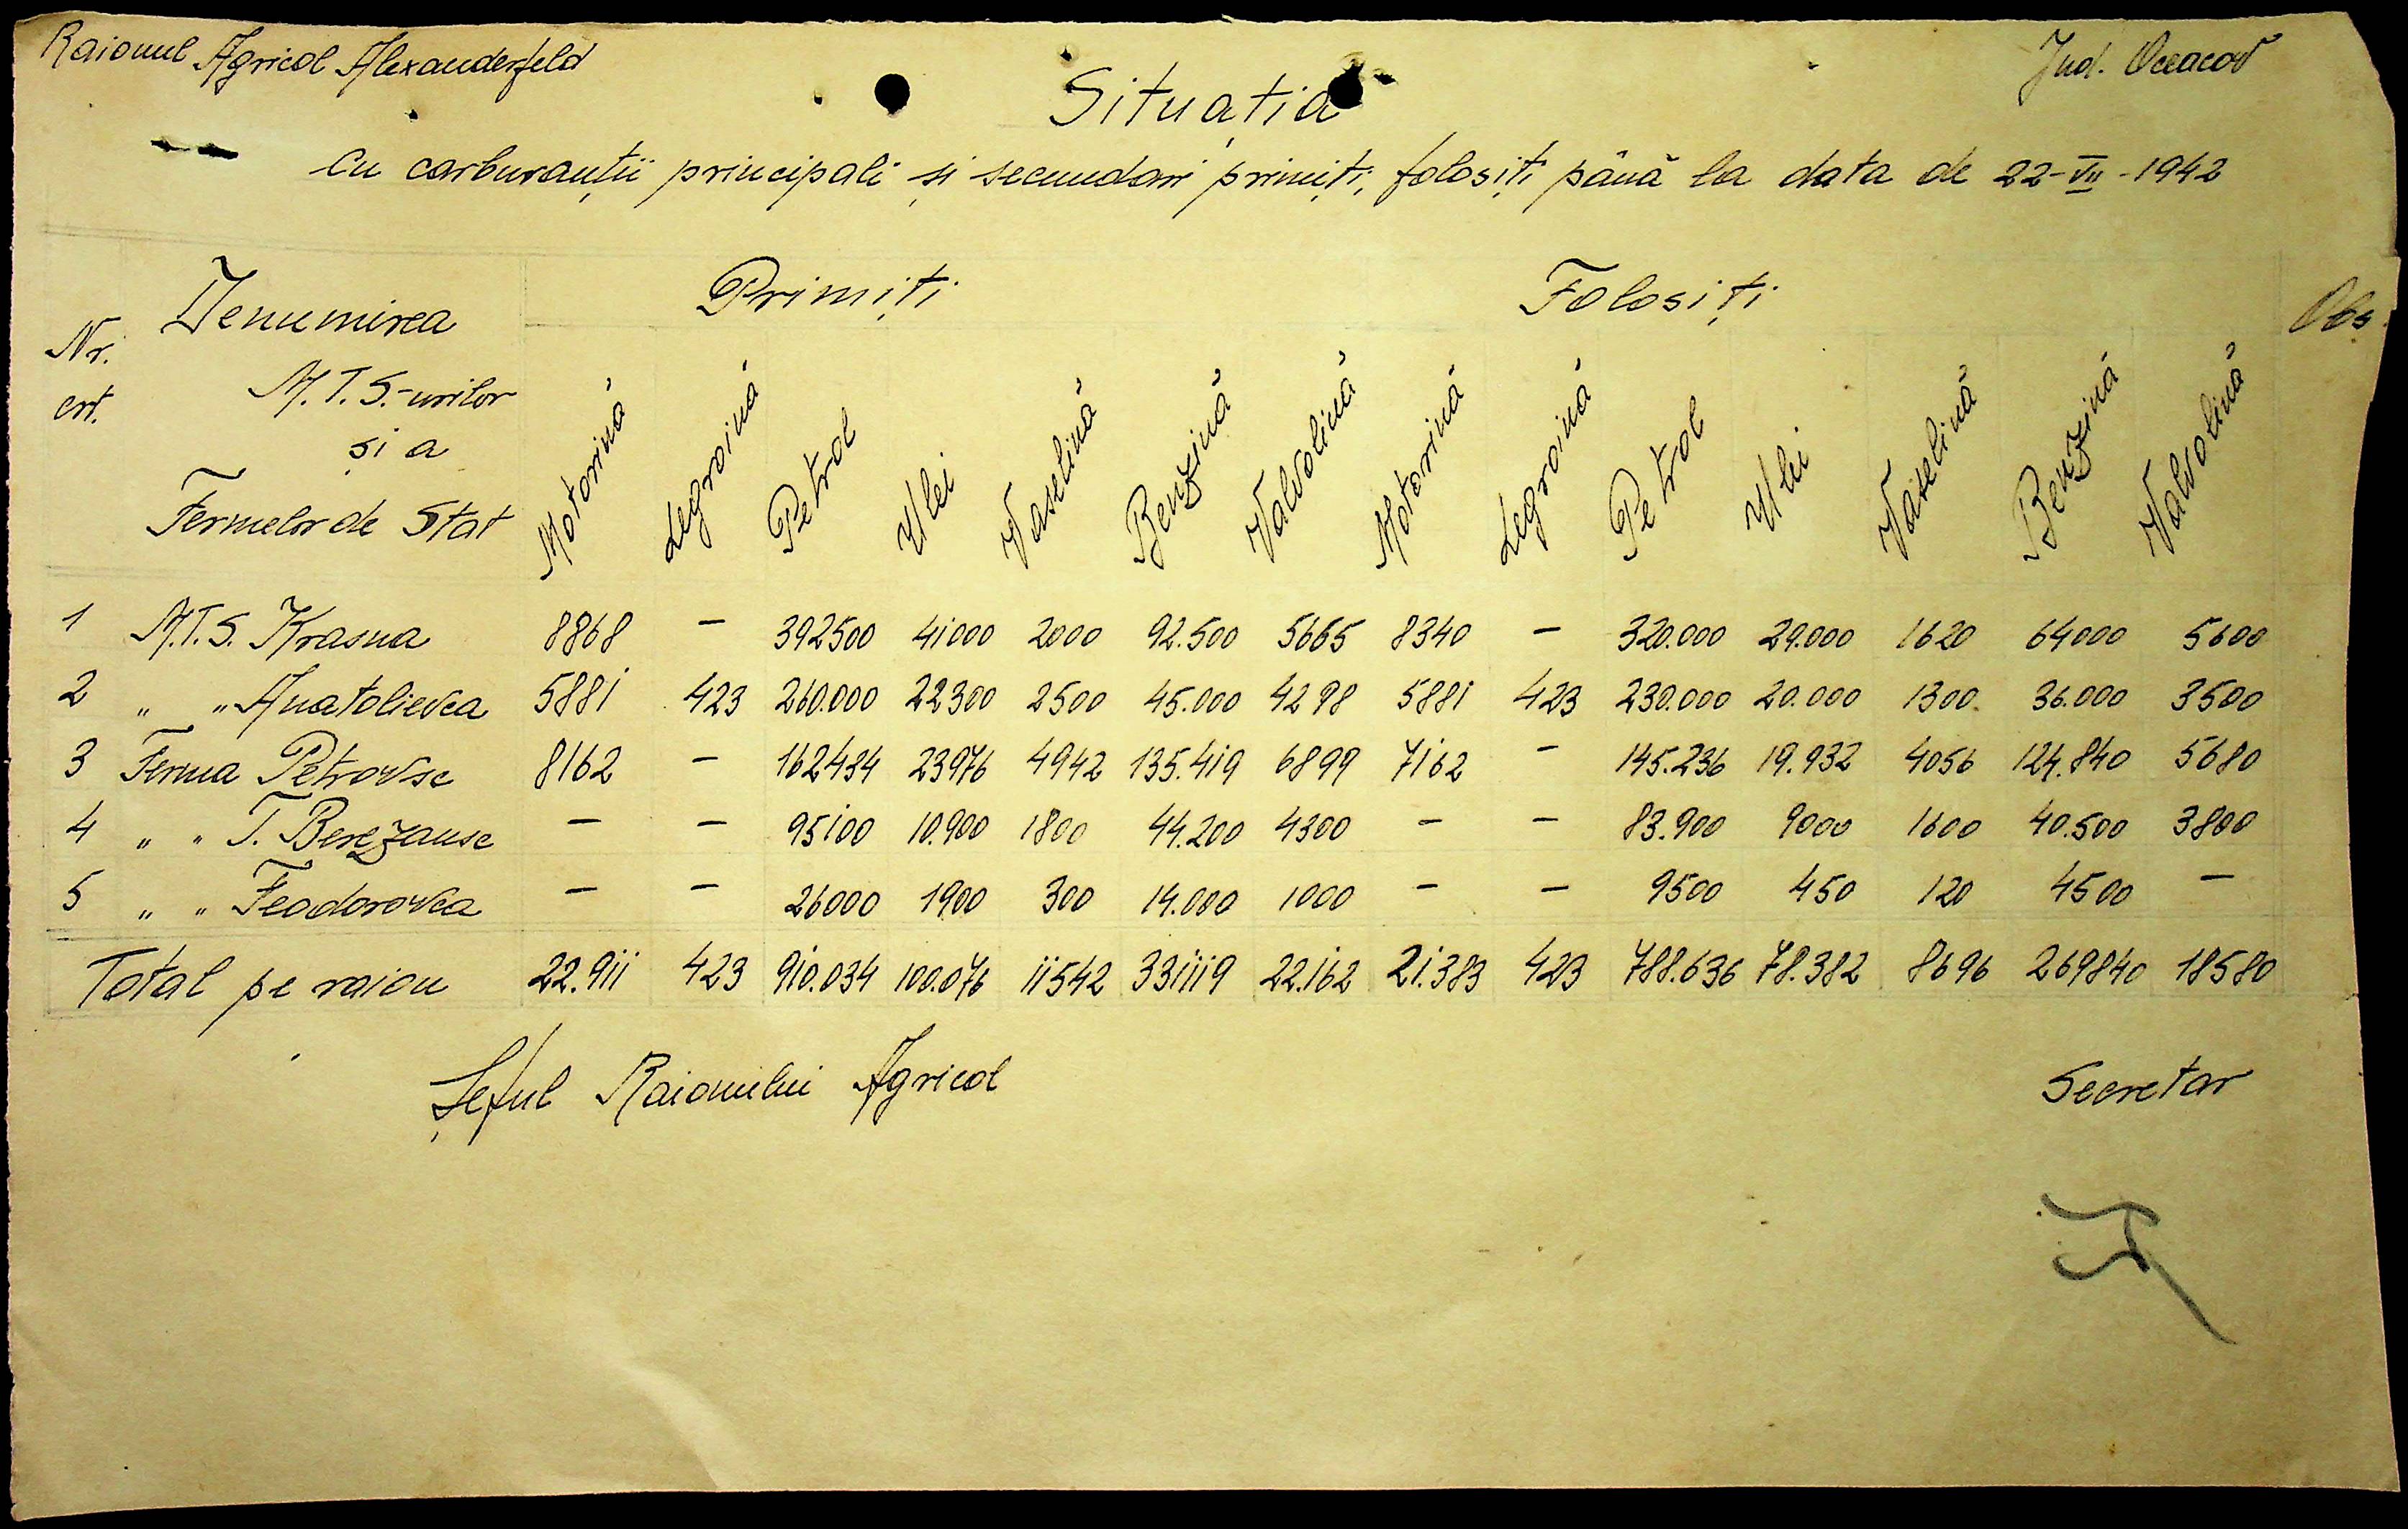 Raionul Agricol Alexanderfeld
Jud. Oceacov
Situația
cu carburanții principali și secundari primiți, folosiți până la data de 22-VII-1942
Nr. crt.
Denumirea
M.T.S.-urilor
și a
Fermelor de Stat
Primiți
Folosiți
Obs.
Motorină Legroină Petrol Ulei Vaselină Benzină Valvolină Motorină Legroină Petrol Ulei Vaselină Benzină Valvolină
1 M.T.S. Krasna 8868 — 392500 41000 2000 92.500 5665 8340 — 320.000 29.000 1620 64000 5600
2 „ „ Anatolievca 5881 423 260.000 22300 2500 45.000 4298 5881 423 230.000 20.000 1300 36.000 3500
3 Ferma Petrovsc 8162 — 162434 23976 4942 135.419 6899 7162 — 145.236 19.932 4056 124.840 5680
4 „ „ T. Berezansc — — 95100 10.900 1800 44.200 4300 — — 83.900 9000 1600 40.500 3800
5 „ „ Feodorovca — — 26000 1900 300 14.000 1000 — — 9500 450 120 4500 —
Total pe raion 22.911 423 910.034 100.076 11542 331119 22.162 21.383 423 788.636 78.382 8696 269840 18580
Șeful Raionului Agricol
Secretar